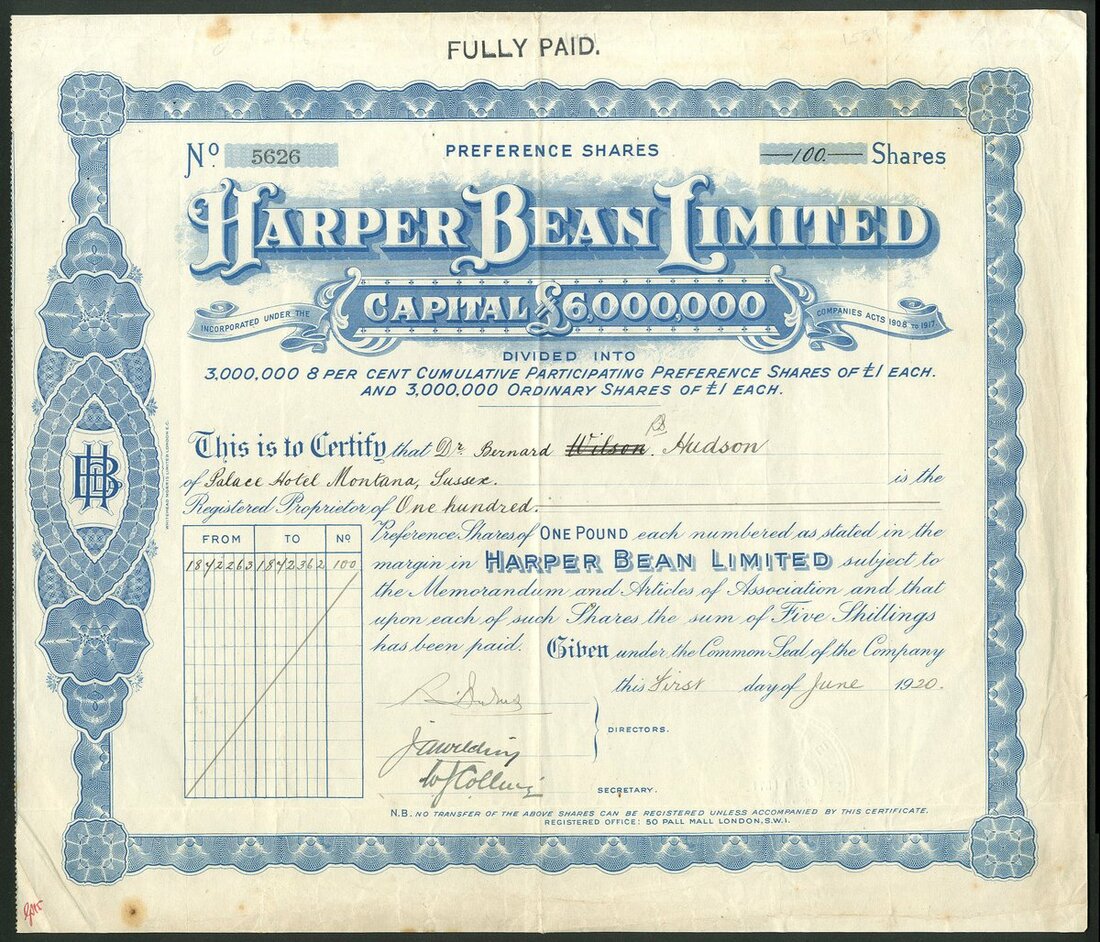 FULLY PAID.
No 5626
PREFERENCE SHARES
100 Shares
HARPER BEAN LIMITED
CAPITAL £6,000,000
INCORPORATED UNDER THE COMPANIES ACTS 1908 TO 1917
DIVIDED INTO
3,000,000 8 PER CENT CUMULATIVE PARTICIPATING PREFERENCE SHARES OF £1 EACH.
AND 3,000,000 ORDINARY SHARES OF £1 EACH.
This is to Certify that Dr. Bernard Wilson. Hudson
of Palace Hotel Montana, Sussex. is the
Registered Proprietor of One hundred.
Preference Shares of ONE POUND each numbered as stated in the
margin in HARPER BEAN LIMITED subject to
the Memorandum and Articles of Association and that
upon each of such Shares the sum of Five Shillings
has been paid. Given under the Common Seal of the Company
this First day of June 1920.
FROM TO No
1842263 1842362 100
HB
DIRECTORS.
SECRETARY.
N.B. NO TRANSFER OF THE ABOVE SHARES CAN BE REGISTERED UNLESS ACCOMPANIED BY THIS CERTIFICATE.
REGISTERED OFFICE: 50 PALL MALL LONDON, S.W.1.